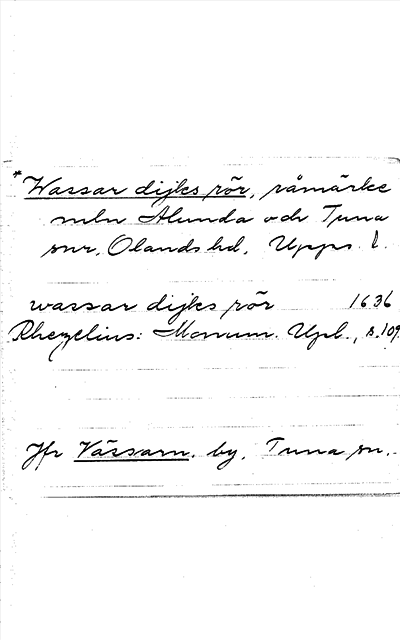 *Wassar dijks rör, råmärke
mln Alunda och Tuna
snr, Olands hd, Upps. l.
wassar dijks rör 1636
Rhezelius: Monum. Upl., s. 109
Jfr Vässarn, by, Tuna sn.